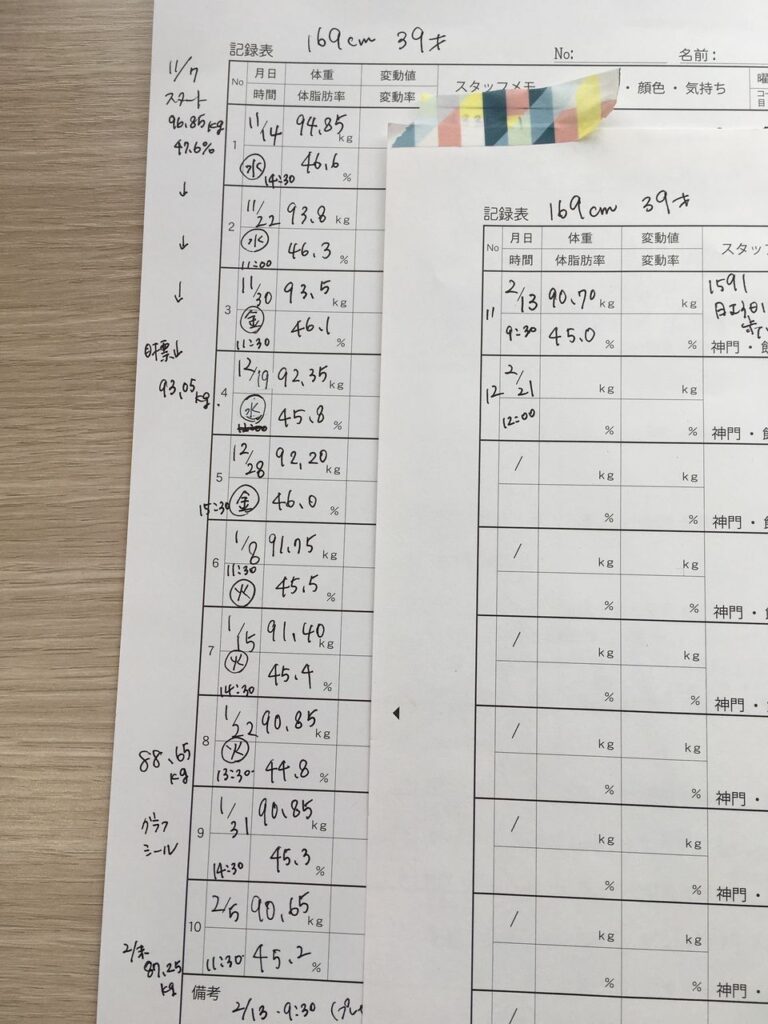 記録表 169cm 39才 No: 名前:
11/7
スタート
96.85kg
47.6%
↓
↓
↓
目標↓
93.05kg.
88.65
kg
グラフ
シール
2/末
87.25
kg
No 月日 体重 変動値 スタッフメモ ・顔色・気持ち
時間 体脂肪率 変動率
1 11/14 94.85 kg
水 14:30 46.6 %
2 11/22 93.8 kg
水 11:00 46.3 %
3 11/30 93.5 kg
金 11:30 46.1 %
4 12/19 92.35 kg
水 45.8 %
5 12/28 92.20 kg
15:30 金 46.0 %
6 1/8 91.75 kg
11:30 火 45.5 %
7 1/15 91.40 kg
火 14:30 45.4 %
8 1/22 90.85 kg
火 13:30 44.8 %
9 1/31 90.85 kg
14:30 45.3 %
10 2/5 90.65 kg
11:30 45.2 %
備考
2/13・9:30 (プレ
記録表 169cm 39才
No 月日 体重 変動値 スタッフ
時間 体脂肪率 変動率
11 2/13 90.70 kg kg 1591
9:30 45.0 % % 神門・
12 2/21 kg kg
12:00 % % 神門・
/ kg kg
% % 神門・
/ kg kg
% % 神門・
/ kg kg
% % 神門・
/ kg kg
% % 神門・
/ kg kg
% % 神門・
/ kg kg
% % 神門・
/
kg kg